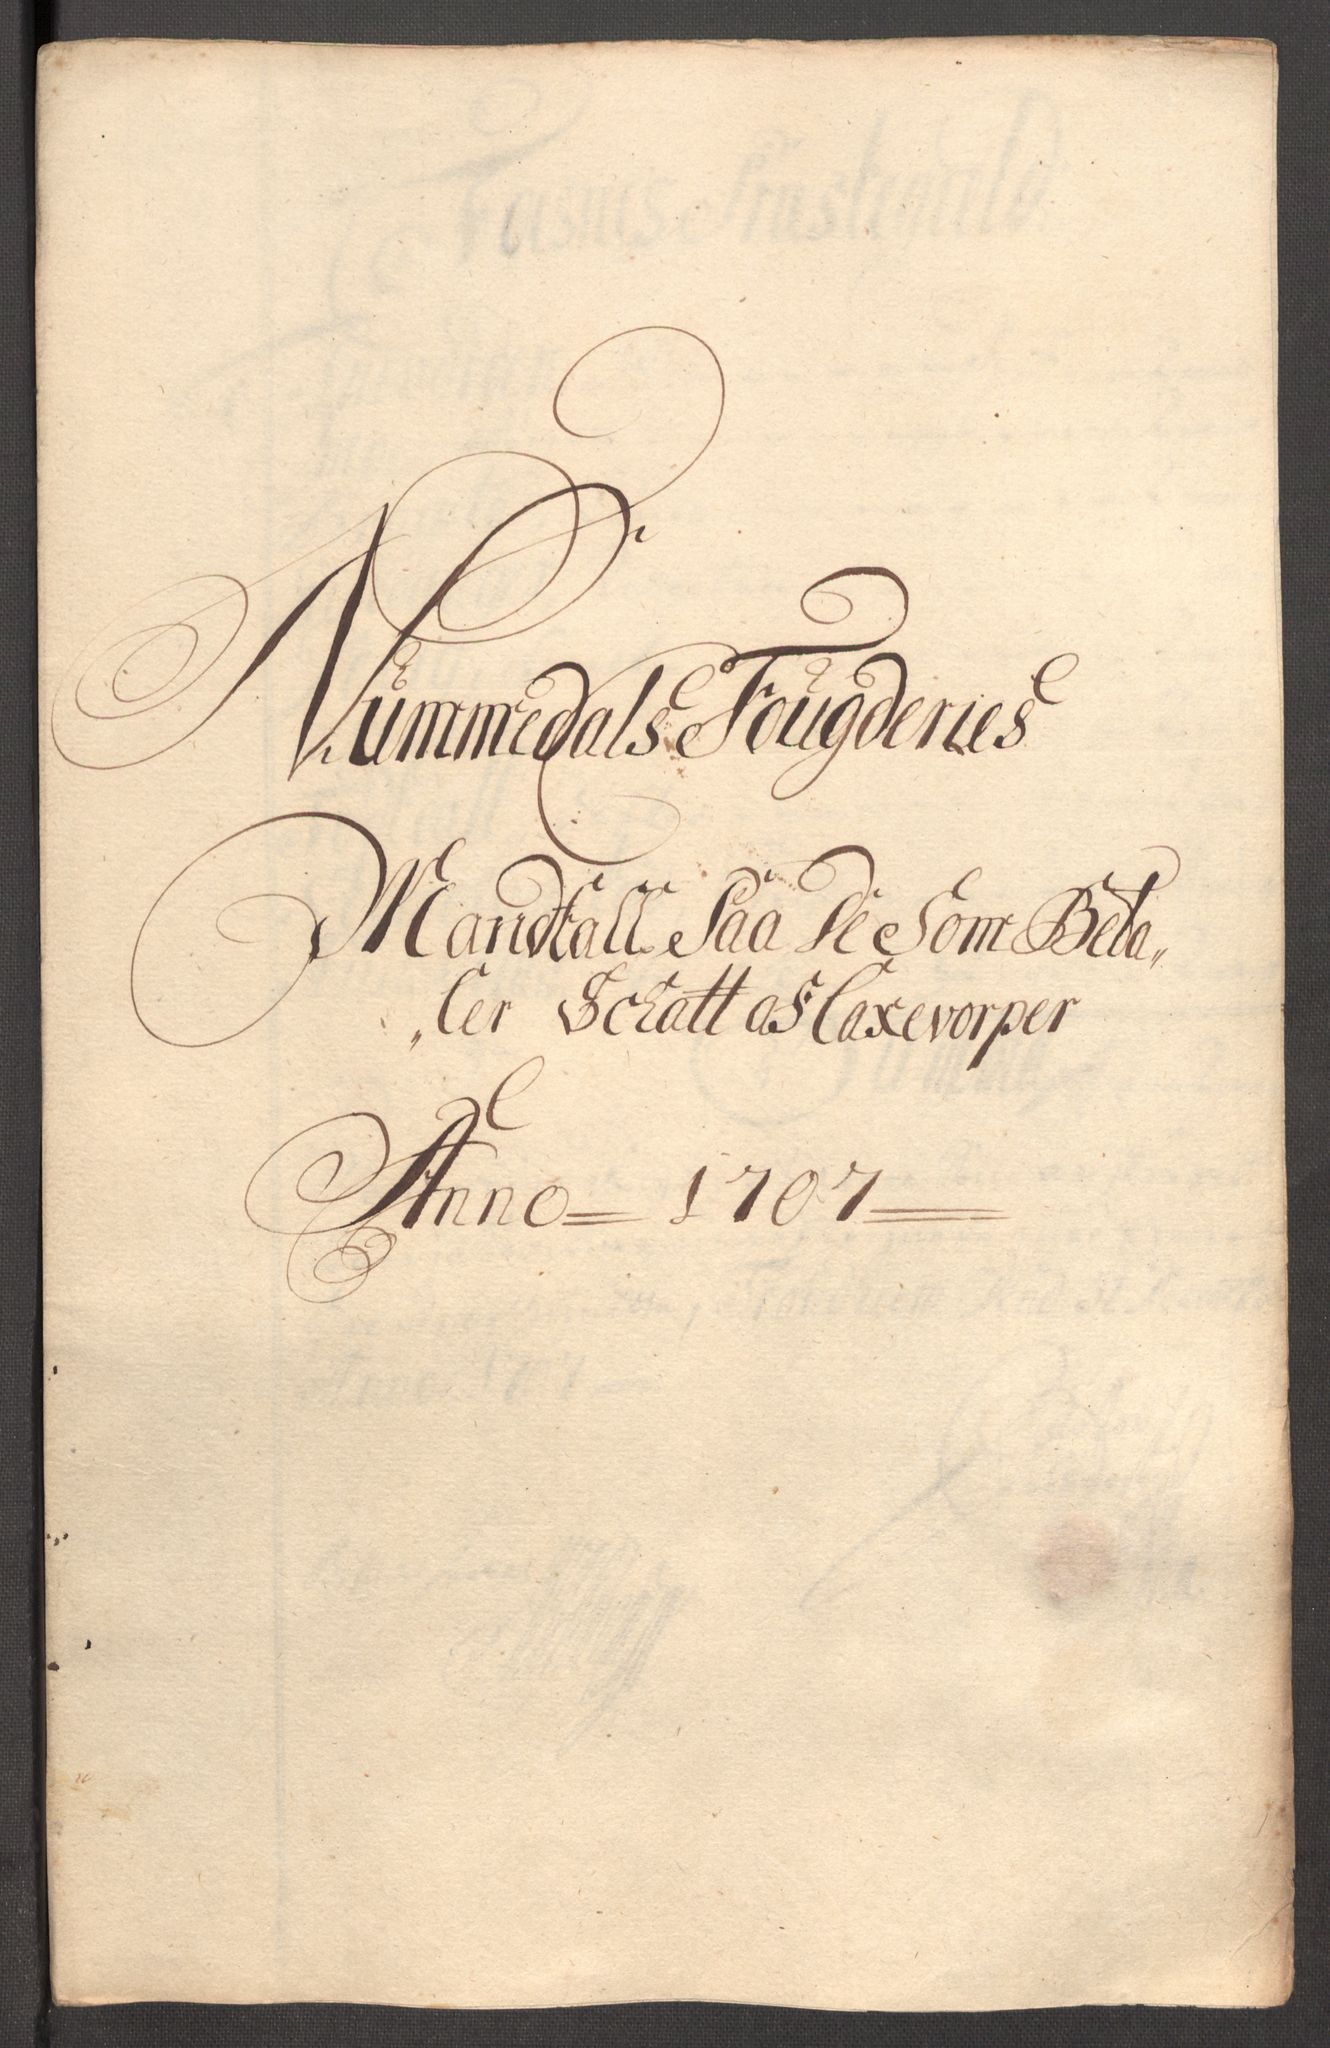 Nummedals Fougderies
Mandtall Paa de Som Beta„
„ler Schatt af Laxevorper
Anno 1707